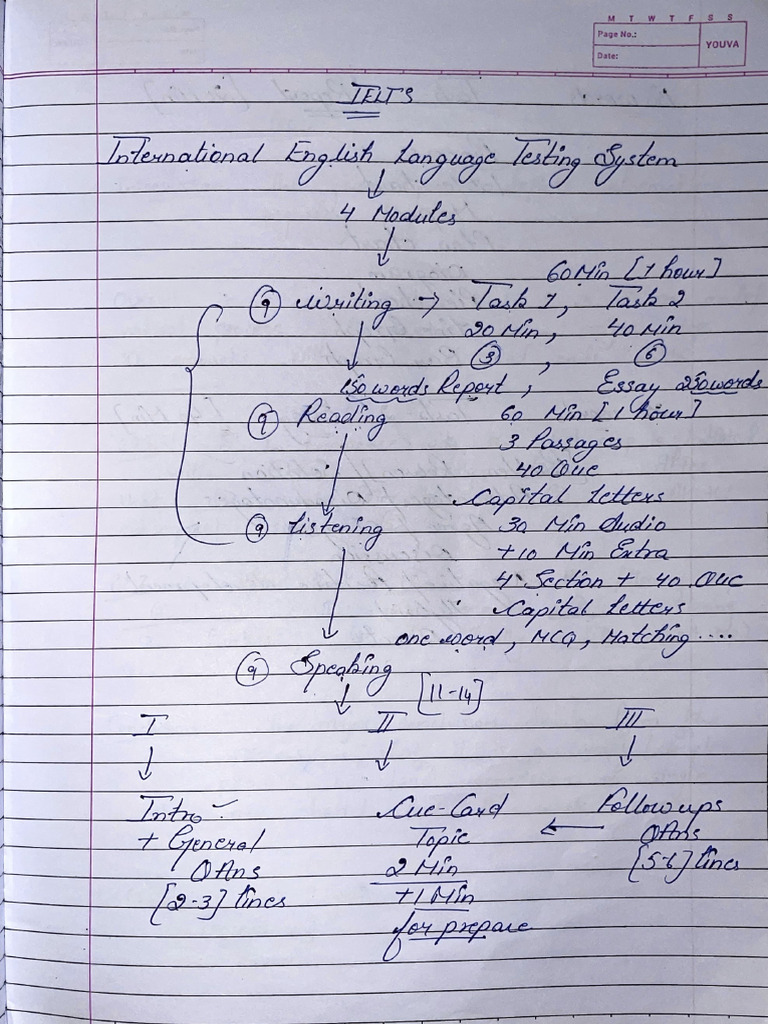 M T W T F S S
Page No.:
YOUVA
Date:
IELTS
International English Language Testing System
4 Modules
60 Min [1 hour]
9 Writing → Task 1, Task 2
20 Min, 40 Min
3, 6
150 words Report, Essay 250 words
9 Reading 60 Min [1 hour]
3 Passages
40 Que
Capital letters
9 Listening 30 Min Audio
+10 Min Extra
4 Section + 40 Que
Capital letters
one word, MCQ, Matching....
9 Speaking
[11-14]
I II III
Intro - Cue-Card Follow ups
+ General Topic ← QAns
QAns 2 Min [5-6] lines
[2-3] lines +1 Min
for prepare